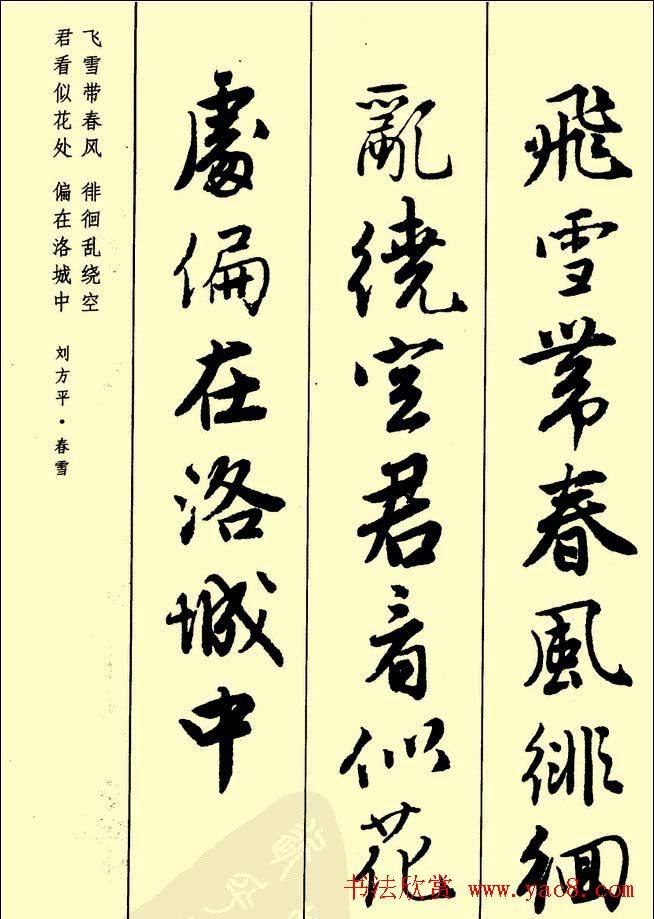 飛雪帶春風徘徊
亂繞空君看似花
處偏在洛城中
飞雪带春风 徘徊乱绕空
君看似花处 偏在洛城中 刘方平·春雪
书法欣赏 www.yac8.com